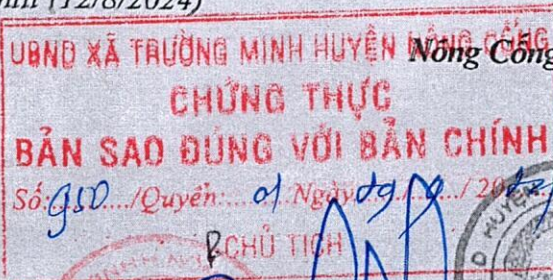 (12/8/2024)
UBND XÃ TRƯỜNG MINH HUYỆN NÔNG CỐNG
Nông Cống
CHỨNG THỰC
BẢN SAO ĐÚNG VỚI BẢN CHÍNH
Số: 950 /Quyển: 01 Ngày / 20
P.CHỦ TỊCH
HUYỆN